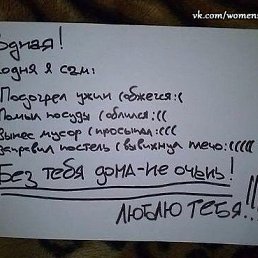 vk.com/womens
одная!
одня я сам:
Подогрел ужин (обжегся:((
Помыл посуды (облился:(((
Вынес мусор (просыпал:(((
заправил постель (вывихнул плечо:((((
Без тебя дома-не очень!
люблю тебя..!!!